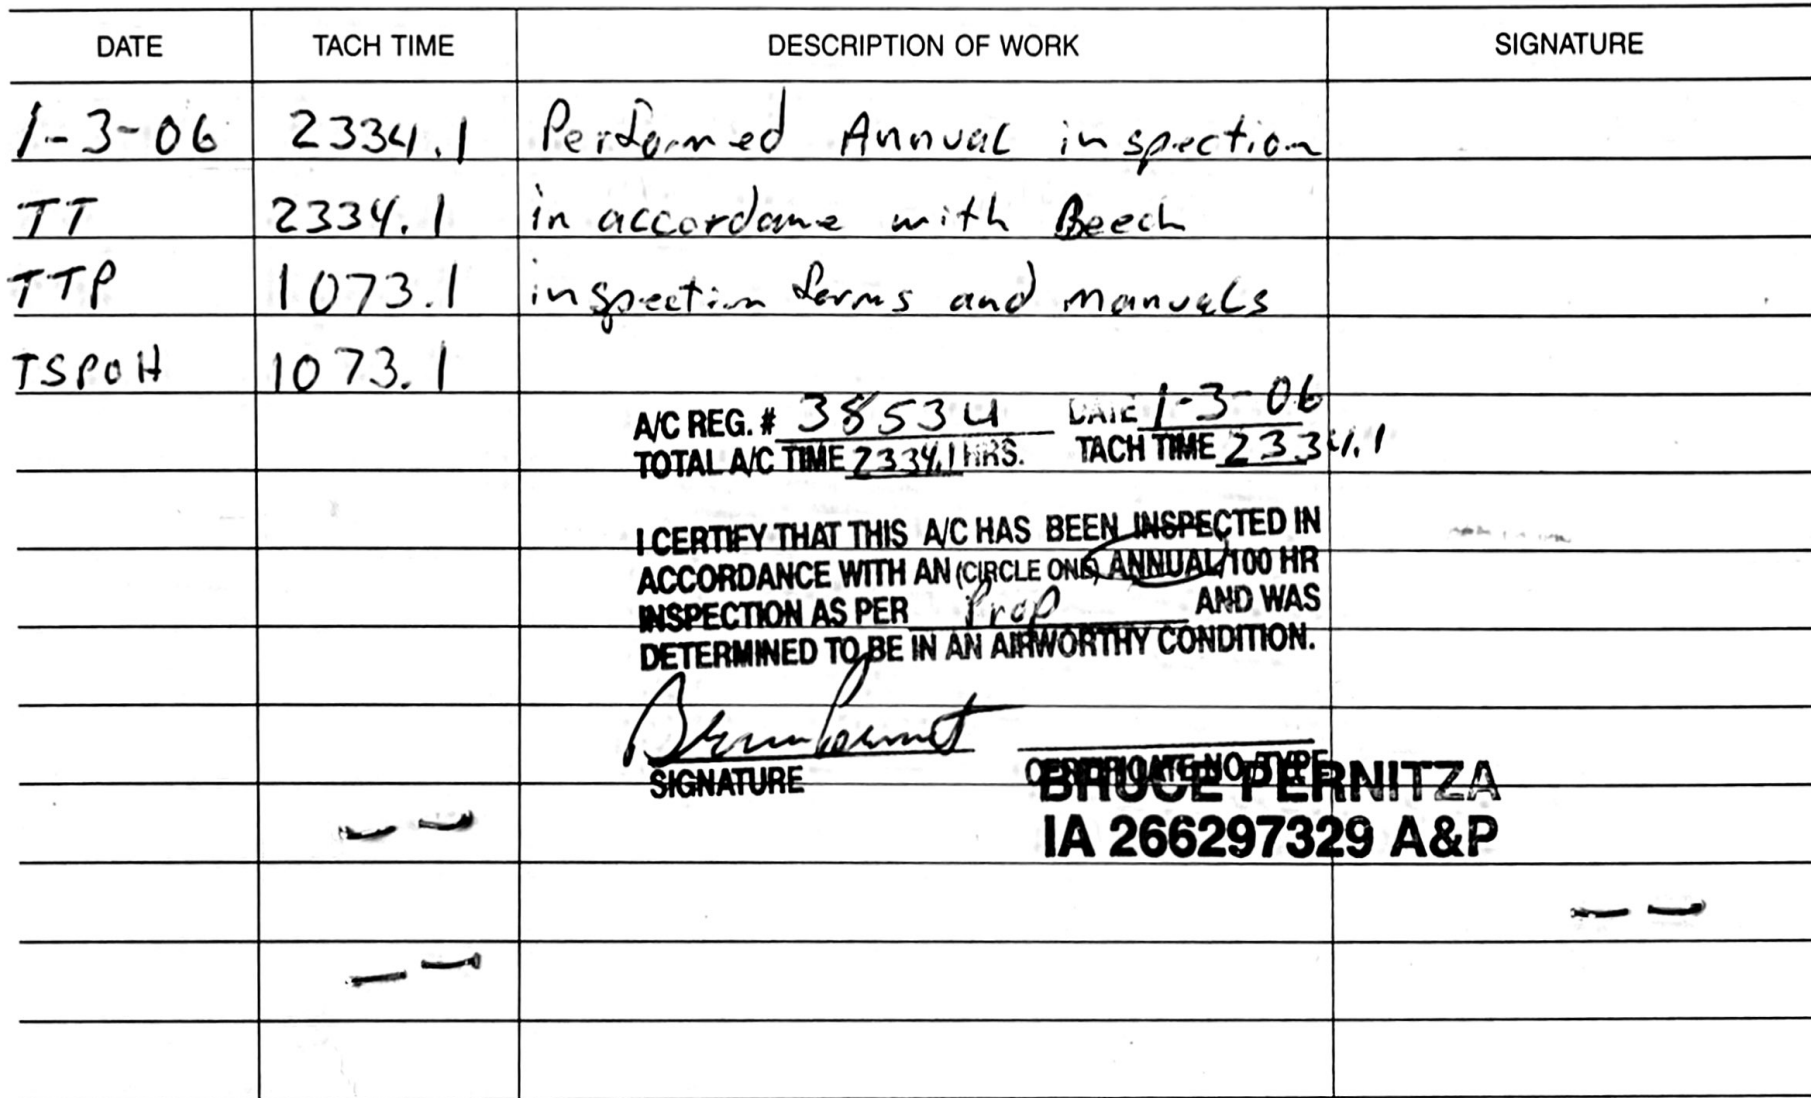 DATE TACH TIME DESCRIPTION OF WORK SIGNATURE
1-3-06 2334.1 Performed Annual inspection
TT 2334.1 in accordance with Beech
TTP 1073.1 inspection forms and manuals
TSPOH 1073.1
A/C REG. # 3853U DATE 1-3-06
TOTAL A/C TIME 2334.1 HRS. TACH TIME 2334.1
I CERTIFY THAT THIS A/C HAS BEEN INSPECTED IN
ACCORDANCE WITH AN (CIRCLE ONE) ANNUAL/100 HR
INSPECTION AS PER Prop AND WAS
DETERMINED TO BE IN AN AIRWORTHY CONDITION.
SIGNATURE CERTIFICATE NO. TYPE
BRUCE PERNITZA
IA 266297329 A&P